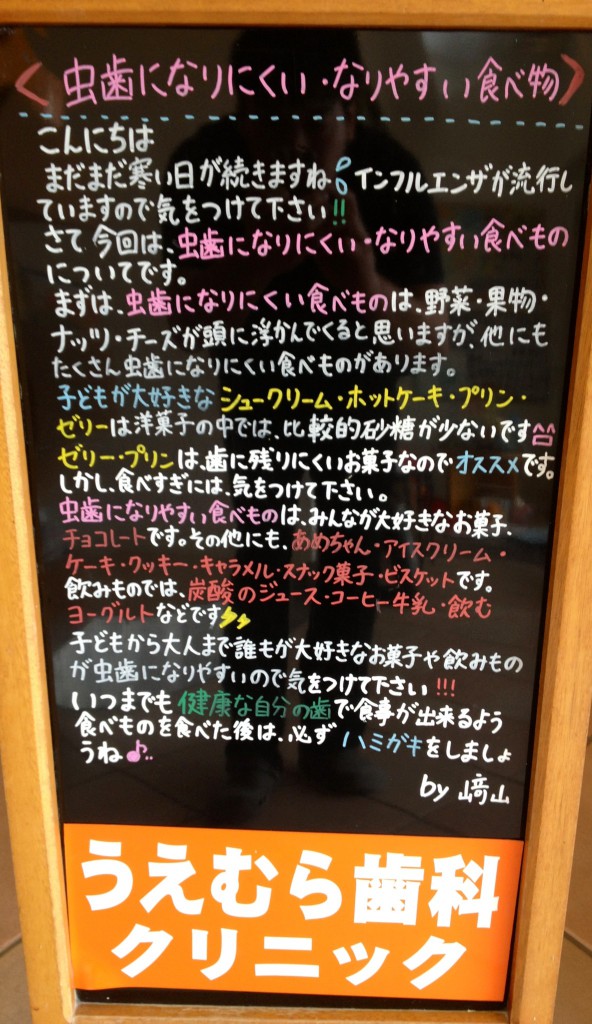 〈虫歯になりにくい・なりやすい食べ物〉
こんにちは
まだまだ寒い日が続きますね インフルエンザが流行し
ていますので気をつけて下さい!!
さて、今回は、虫歯になりにくい・なりやすい食べもの
についてです。
まずは、虫歯になりにくい食べものは、野菜・果物・
ナッツ・チーズが頭に浮かんでくると思いますが、他にも
たくさん虫歯になりにくい食べものがあります。
子どもが大好きなシュークリーム・ホットケーキ・プリン・
ゼリーは洋菓子の中では、比較的砂糖が少ないです
ゼリー・プリンは、歯に残りにくいお菓子なのでオススメです。
しかし、食べすぎには、気をつけて下さい。
虫歯になりやすい食べものは、みんなが大好きなお菓子、
チョコレートです。その他にも、あめちゃん・アイスクリーム・
ケーキ・クッキー・キャラメル・スナック菓子・ビスケットです。
飲みものでは、炭酸のジュース・コーヒー牛乳・飲む
ヨーグルトなどです
子どもから大人まで誰もが大好きなお菓子や飲みもの
が虫歯になりやすいので気をつけて下さい!!!
いつまでも健康な自分の歯で食事が出来るよう
食べものを食べた後は、必ずハミガキをしましょ
うね♪..
by 﨑山
うえむら歯科
クリニック